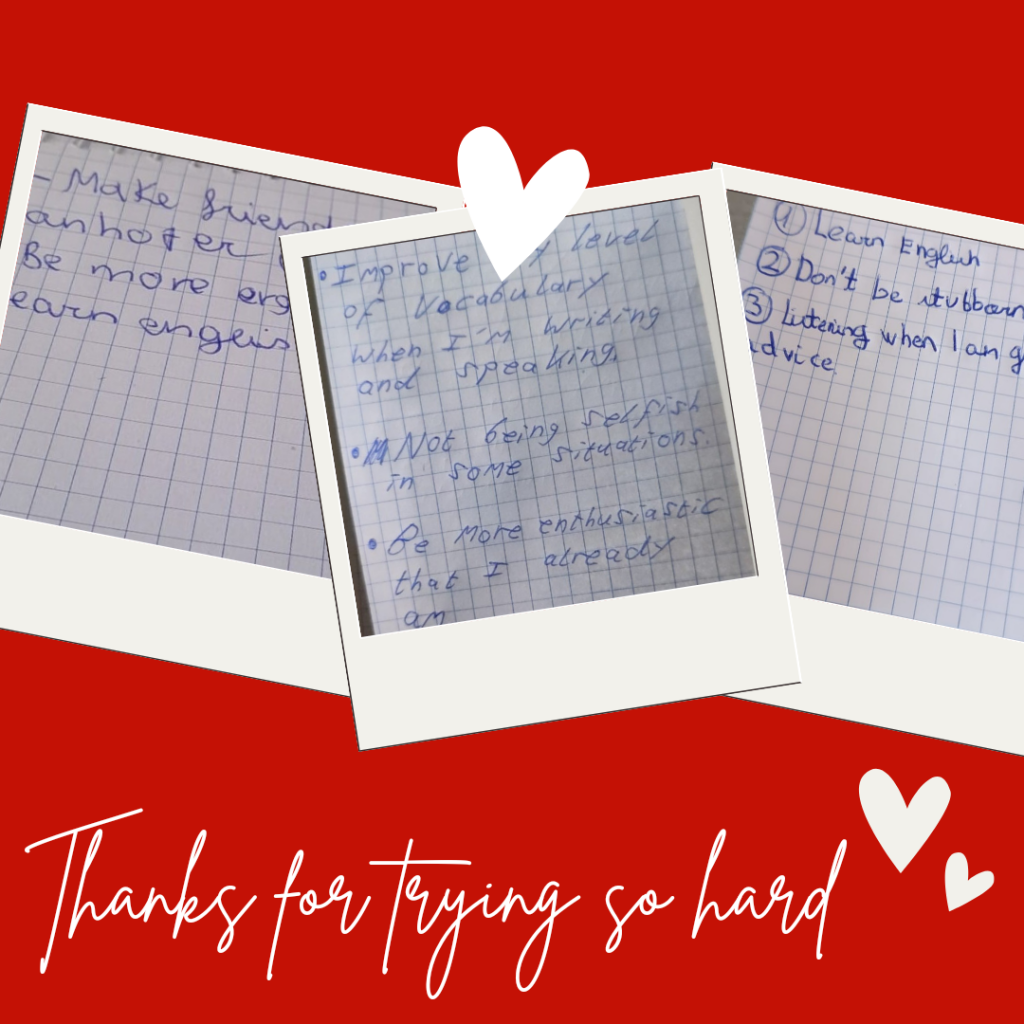 - Make friend
anhoter
Be more erg
earn engeis
• Improve my level
of vocabulary
when I'm writing
and speaking.
• Not being selfish
in some situations.
• Be more enthusiastic
that I already
am
① Learn English
② Don't be stubborn
③ Listening when I an g
advice
Thanks for trying so hard